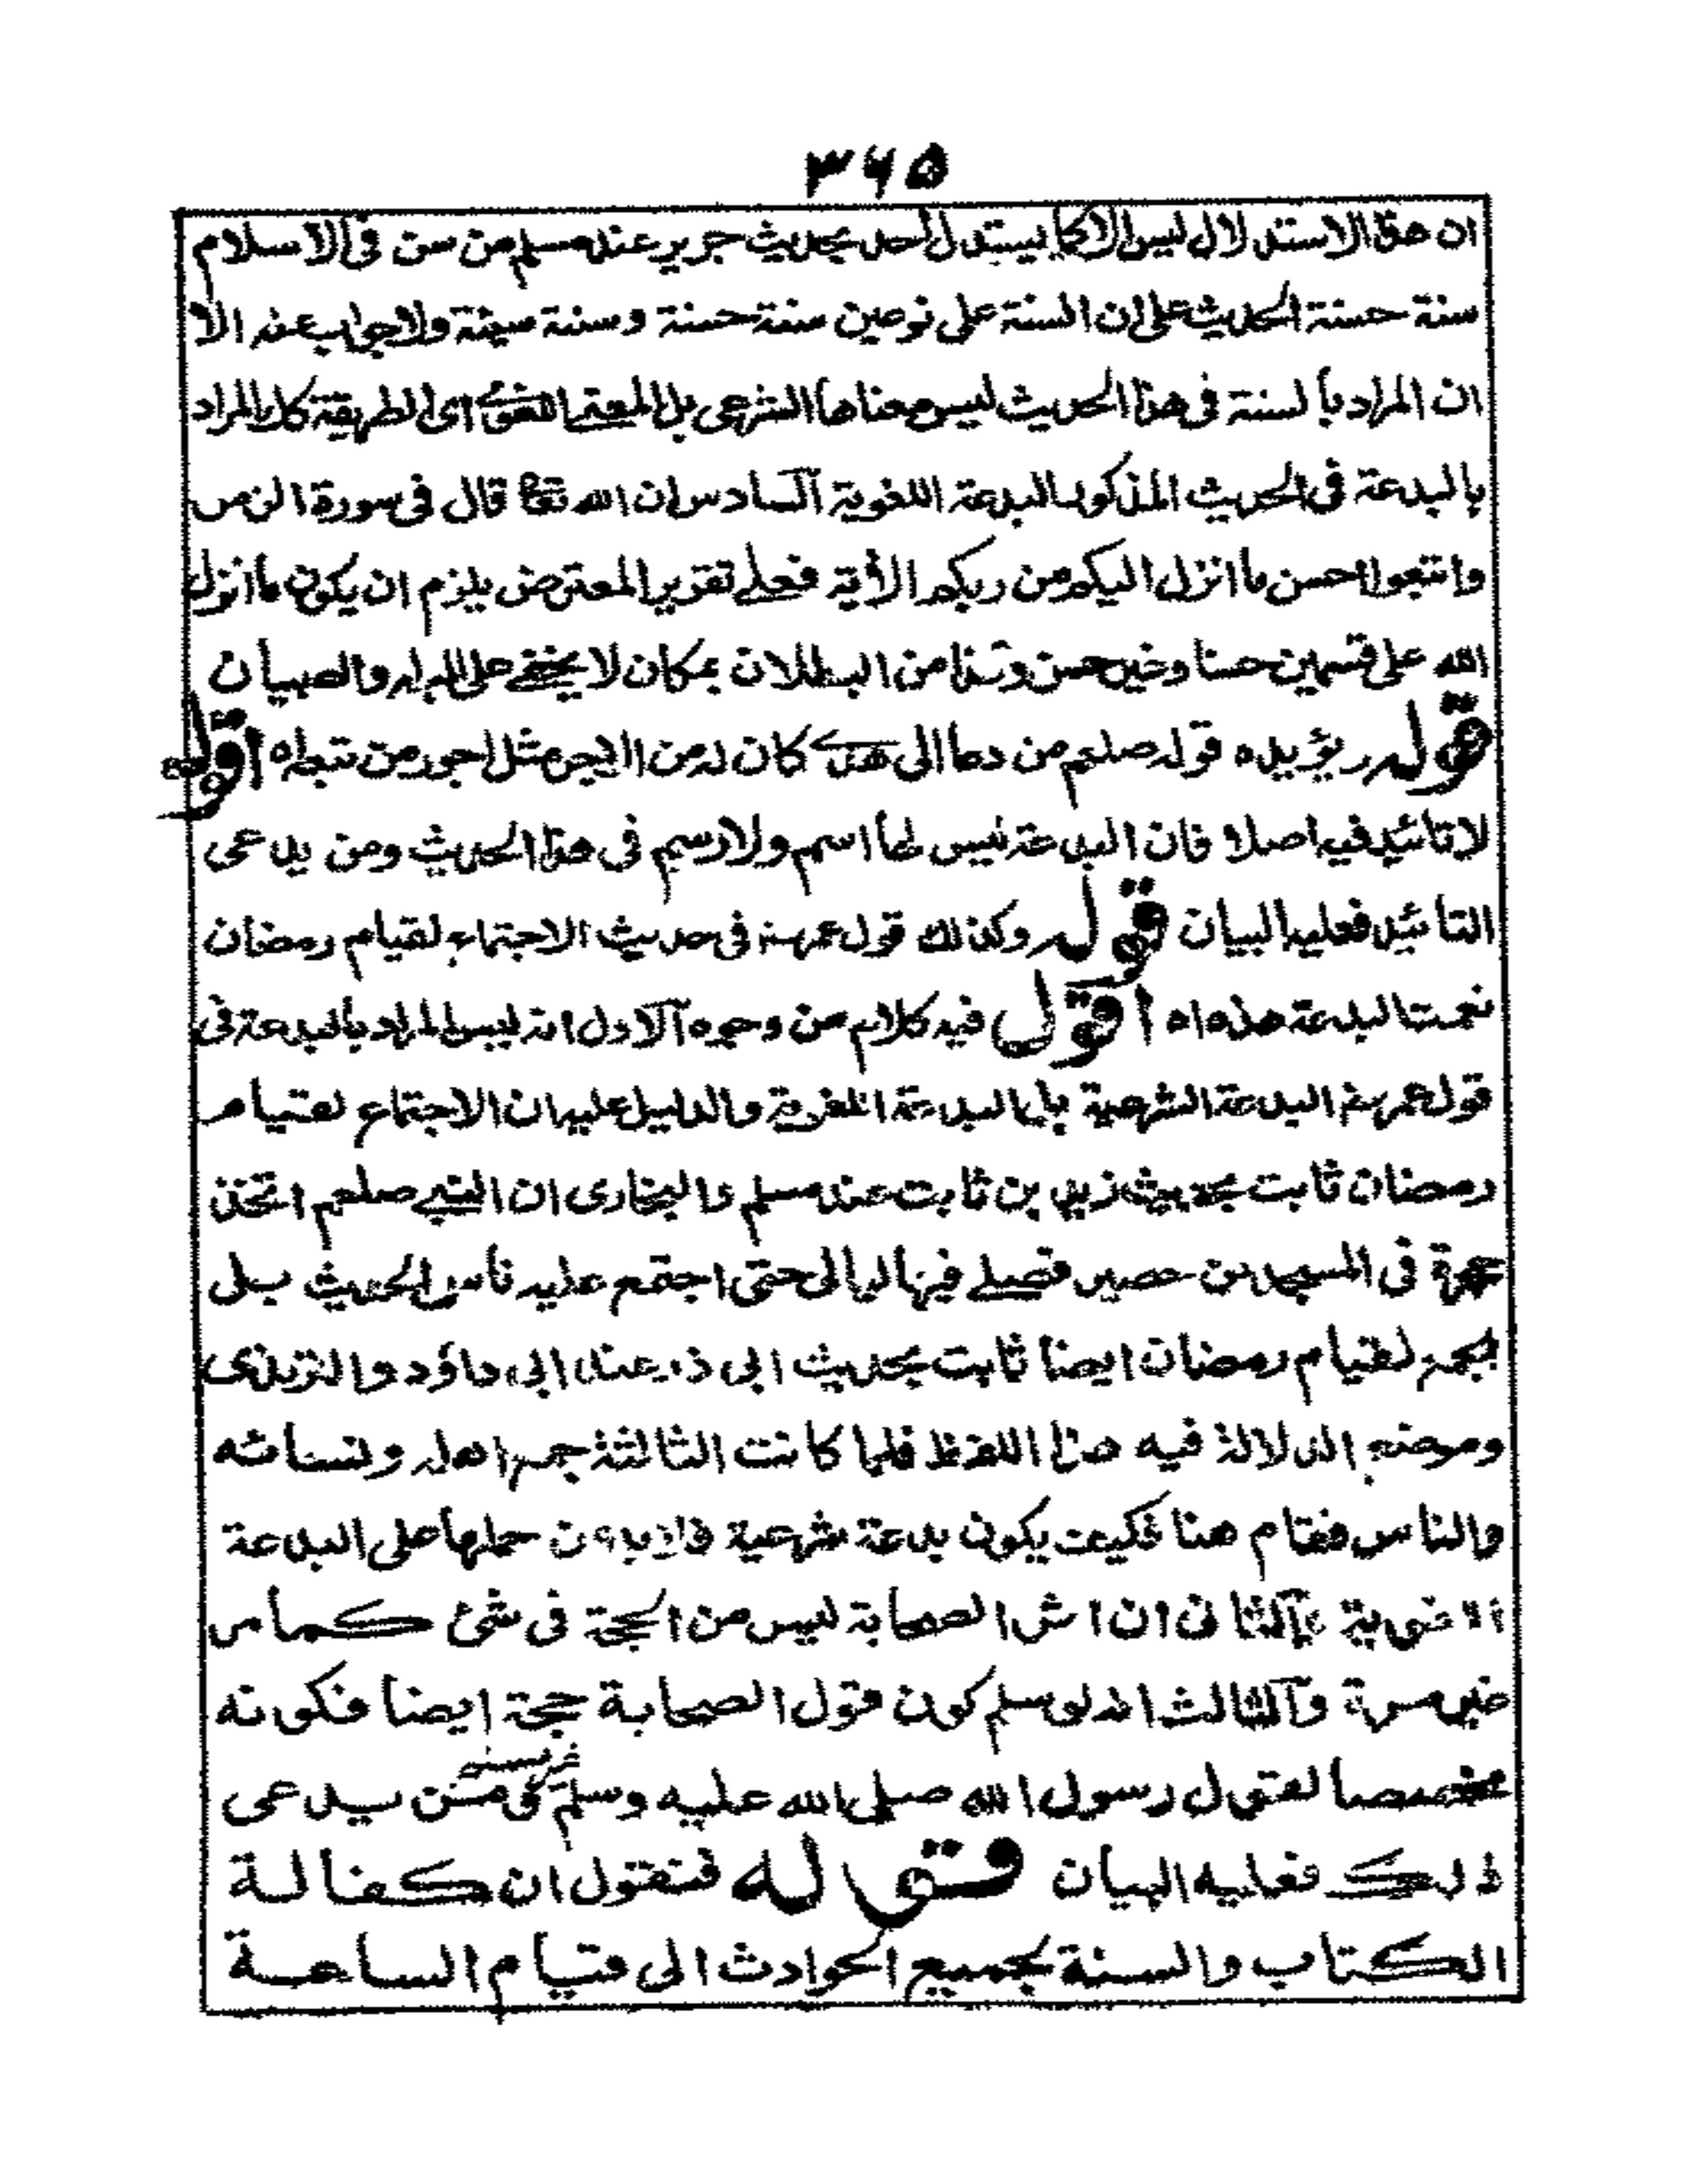 ٣٦٥
ان هذا الاستدلال ليس الا كما يستدل احد بحديث جرير عند مسلم من سن فى الاسلام
سنة حسنة الحديث على ان السنة على نوعين سنة حسنة وسنة سيئة ولا جواب عنه الا
ان المراد بالسنة فى هذا الحديث ليس معناها الشرعى بل المعنى اللغوى اى الطريقة كذا المراد
بالبدعة فى الحديث المذكور البدعة اللغوية السادس ان الله تعا قال فى سورة الزمر
واتبعوا احسن ما انزل اليكم من ربكم الأية فعلى تقرير المعترض يلزم ان يكون ما انزل
الله على قسمين حسنا وغير حسن وهذا من البطلان بمكان لا يخفى على البله والصبيان
قوله ويؤيده قوله صلعم من دعا الى هدى كان له من الاجر مثل اجور من تبعه اه اقول
لا تائيد فيه اصلا فان البدعة ليس لها اسم ولا رسم فى هذا الحديث ومن يدعى
التائيد فعليه البيان قوله وكذلك قول عمر رضـ فى حديث الاجتماع لقيام رمضان
نعمت البدعة هذه اه اقول فيه كلام من وجوه الاول انه ليس المراد بالبدعة فى
قول عمر رضـ البدعة الشرعية بل البدعة اللغوية والدليل عليه ان الاجتماع لقيام
رمضان ثابت بحديث زيد بن ثابت عند مسلم والبخارى ان النبى صلعم اتخذ
حجرة فى المسجد من حصير فصلى فيها ليالى حتى اجتمع عليه ناس الحديث بل
لقيام رمضان ايضا ثابت بحديث ابى ذر عند ابى داؤد والترمذى
وموضع الدلالة فيه هذا اللفظ فلما كانت الثالثة جمع اهله ونسائه
والناس فقام هنا فكيف يكون بدعة شرعية فلا بد من حملها على البدعة
اللغوية والثانى ان اثر الصحابة ليس من الحجة فى شئ كما مر
غير مرة والثالث انه لو سلم كون قول الصحابة حجة ايضا فكونه
مخصصا لقول رسول الله صلى الله عليه وسلم غير مسلم فمن يدعى
ذلك فعليه البيان قوله فنقول ان كفالة
الكتاب والسنة بجميع الحوادث الى قيام الساعة